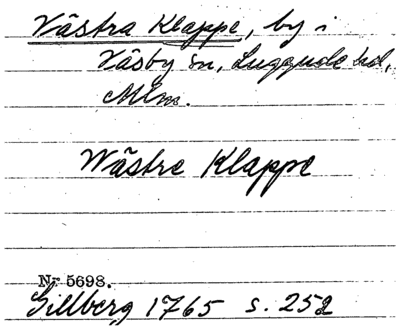 Västra Klappe, by i
Väsby sn, Luggude hd,
Mlm.
Wästre Klappe
Nr 5698.
Gillberg 1765 s. 252